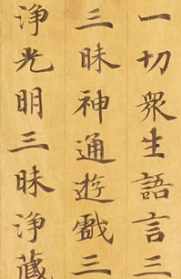 一切衆生語言三
昧神通遊戲三
三昧淨光明三昧淨藏